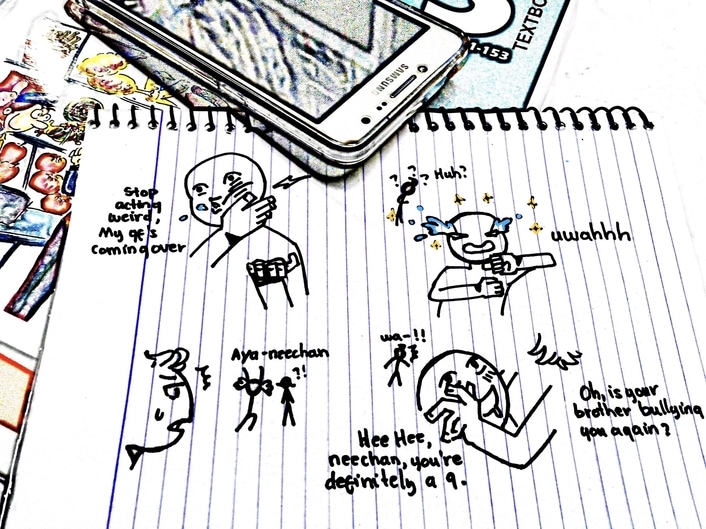 SAMSUNG
1-153
TEXTBO
Stop
acting
weird,
My gf's
coming over
Huh?
? ? ?
uwahhh
Aya-neechan
?!
wa-!!
Hee Hee,
neechan, you're
definitely a 9.
Oh, is your
brother bullying
you again?